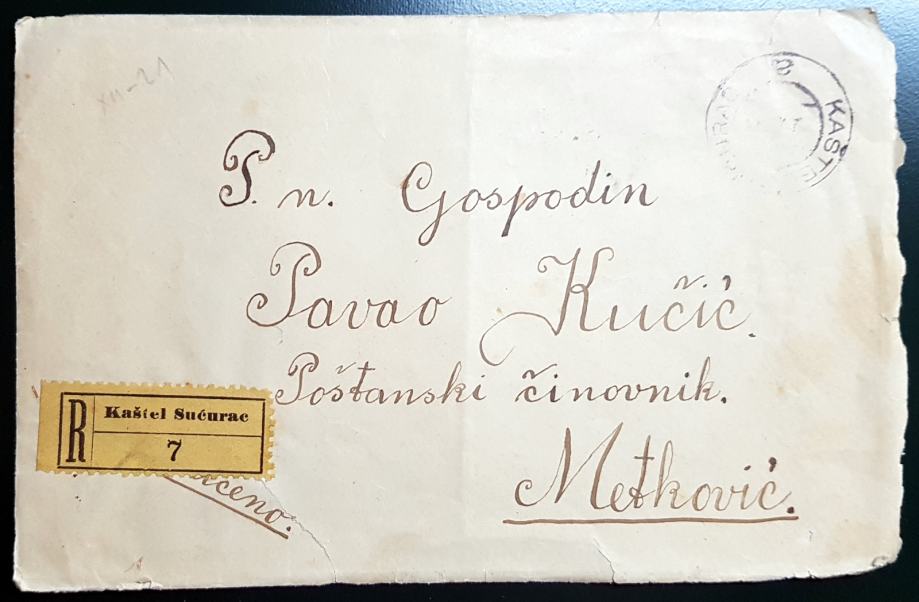 XII-21
KAŠTE
P. n. Gospodin
Pavao Kučić.
Poštanski činovnik.
Metković.
R
Kaštel Sućurac
7